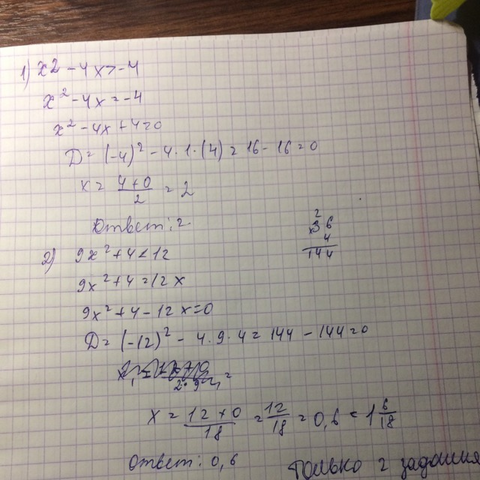 1) x2 - 4x > -4
x² - 4x = -4
x² - 4x + 4 = 0
D = (-4)² - 4 · 1 · (4) = 16 - 16 = 0
x = (4 + 0)/2 = 2
Ответ: 2
2) 9x² + 4 < 12
9x² + 4 = 12x
9x² + 4 - 12x = 0
D = (-12)² - 4 · 9 · 4 = 144 - 144 = 0
x = (12 + 0)/18 = 12/18 = 0,6 = 1 6/18
Ответ: 0,6
2
36
4
144
только 2 задания